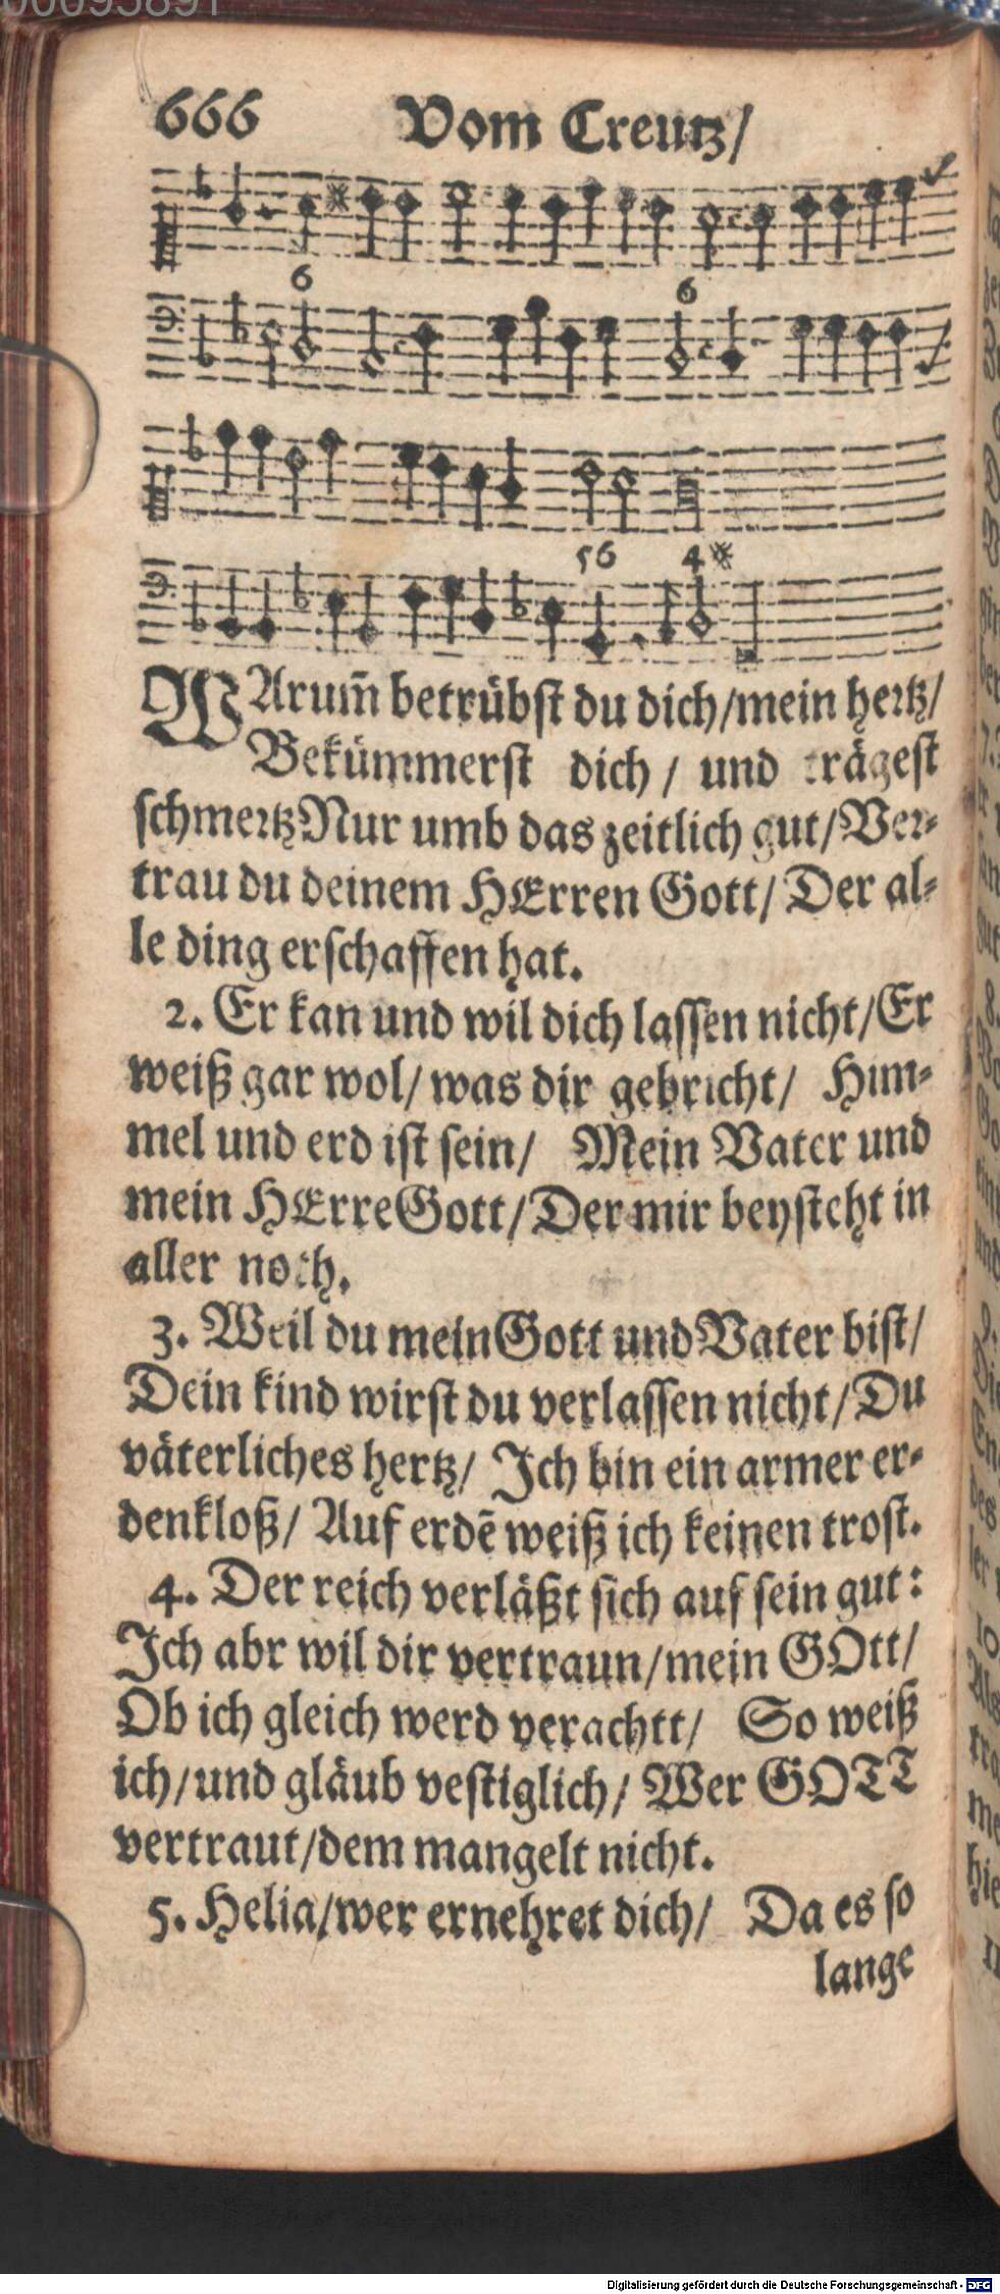 00095891
666 Vom Creutz/
6
6
56 4
WArum̃ betrübst du dich/mein hertz/
Bekümmerst dich/ und trägest
schmertz Nur umb das zeitlich gut/Ver-
trau du deinem HErren Gott/ Der al-
le ding erschaffen hat.
2. Er kan und wil dich lassen nicht/Er
weiß gar wol/ was dir gebricht/ Him-
mel und erd ist sein/ Mein Vater und
mein HErre Gott/Der mir beysteht in
aller noth.
3. Weil du mein Gott und Vater bist/
Dein kind wirst du verlassen nicht/Du
väterliches hertz/ Ich bin ein armer er-
denkloß/ Auf erdē weiß ich keinen trost.
4. Der reich verläßt sich auf sein gut:
Ich abr wil dir vertraun/mein GOtt/
Ob ich gleich werd verachtt/ So weiß
ich/und gläub vestiglich/ Wer GOTT
vertraut/dem mangelt nicht.
5. Helia/wer ernehret dich/ Da es so
lange
Digitalisierung gefördert durch die Deutsche Forschungsgemeinschaft - DFG